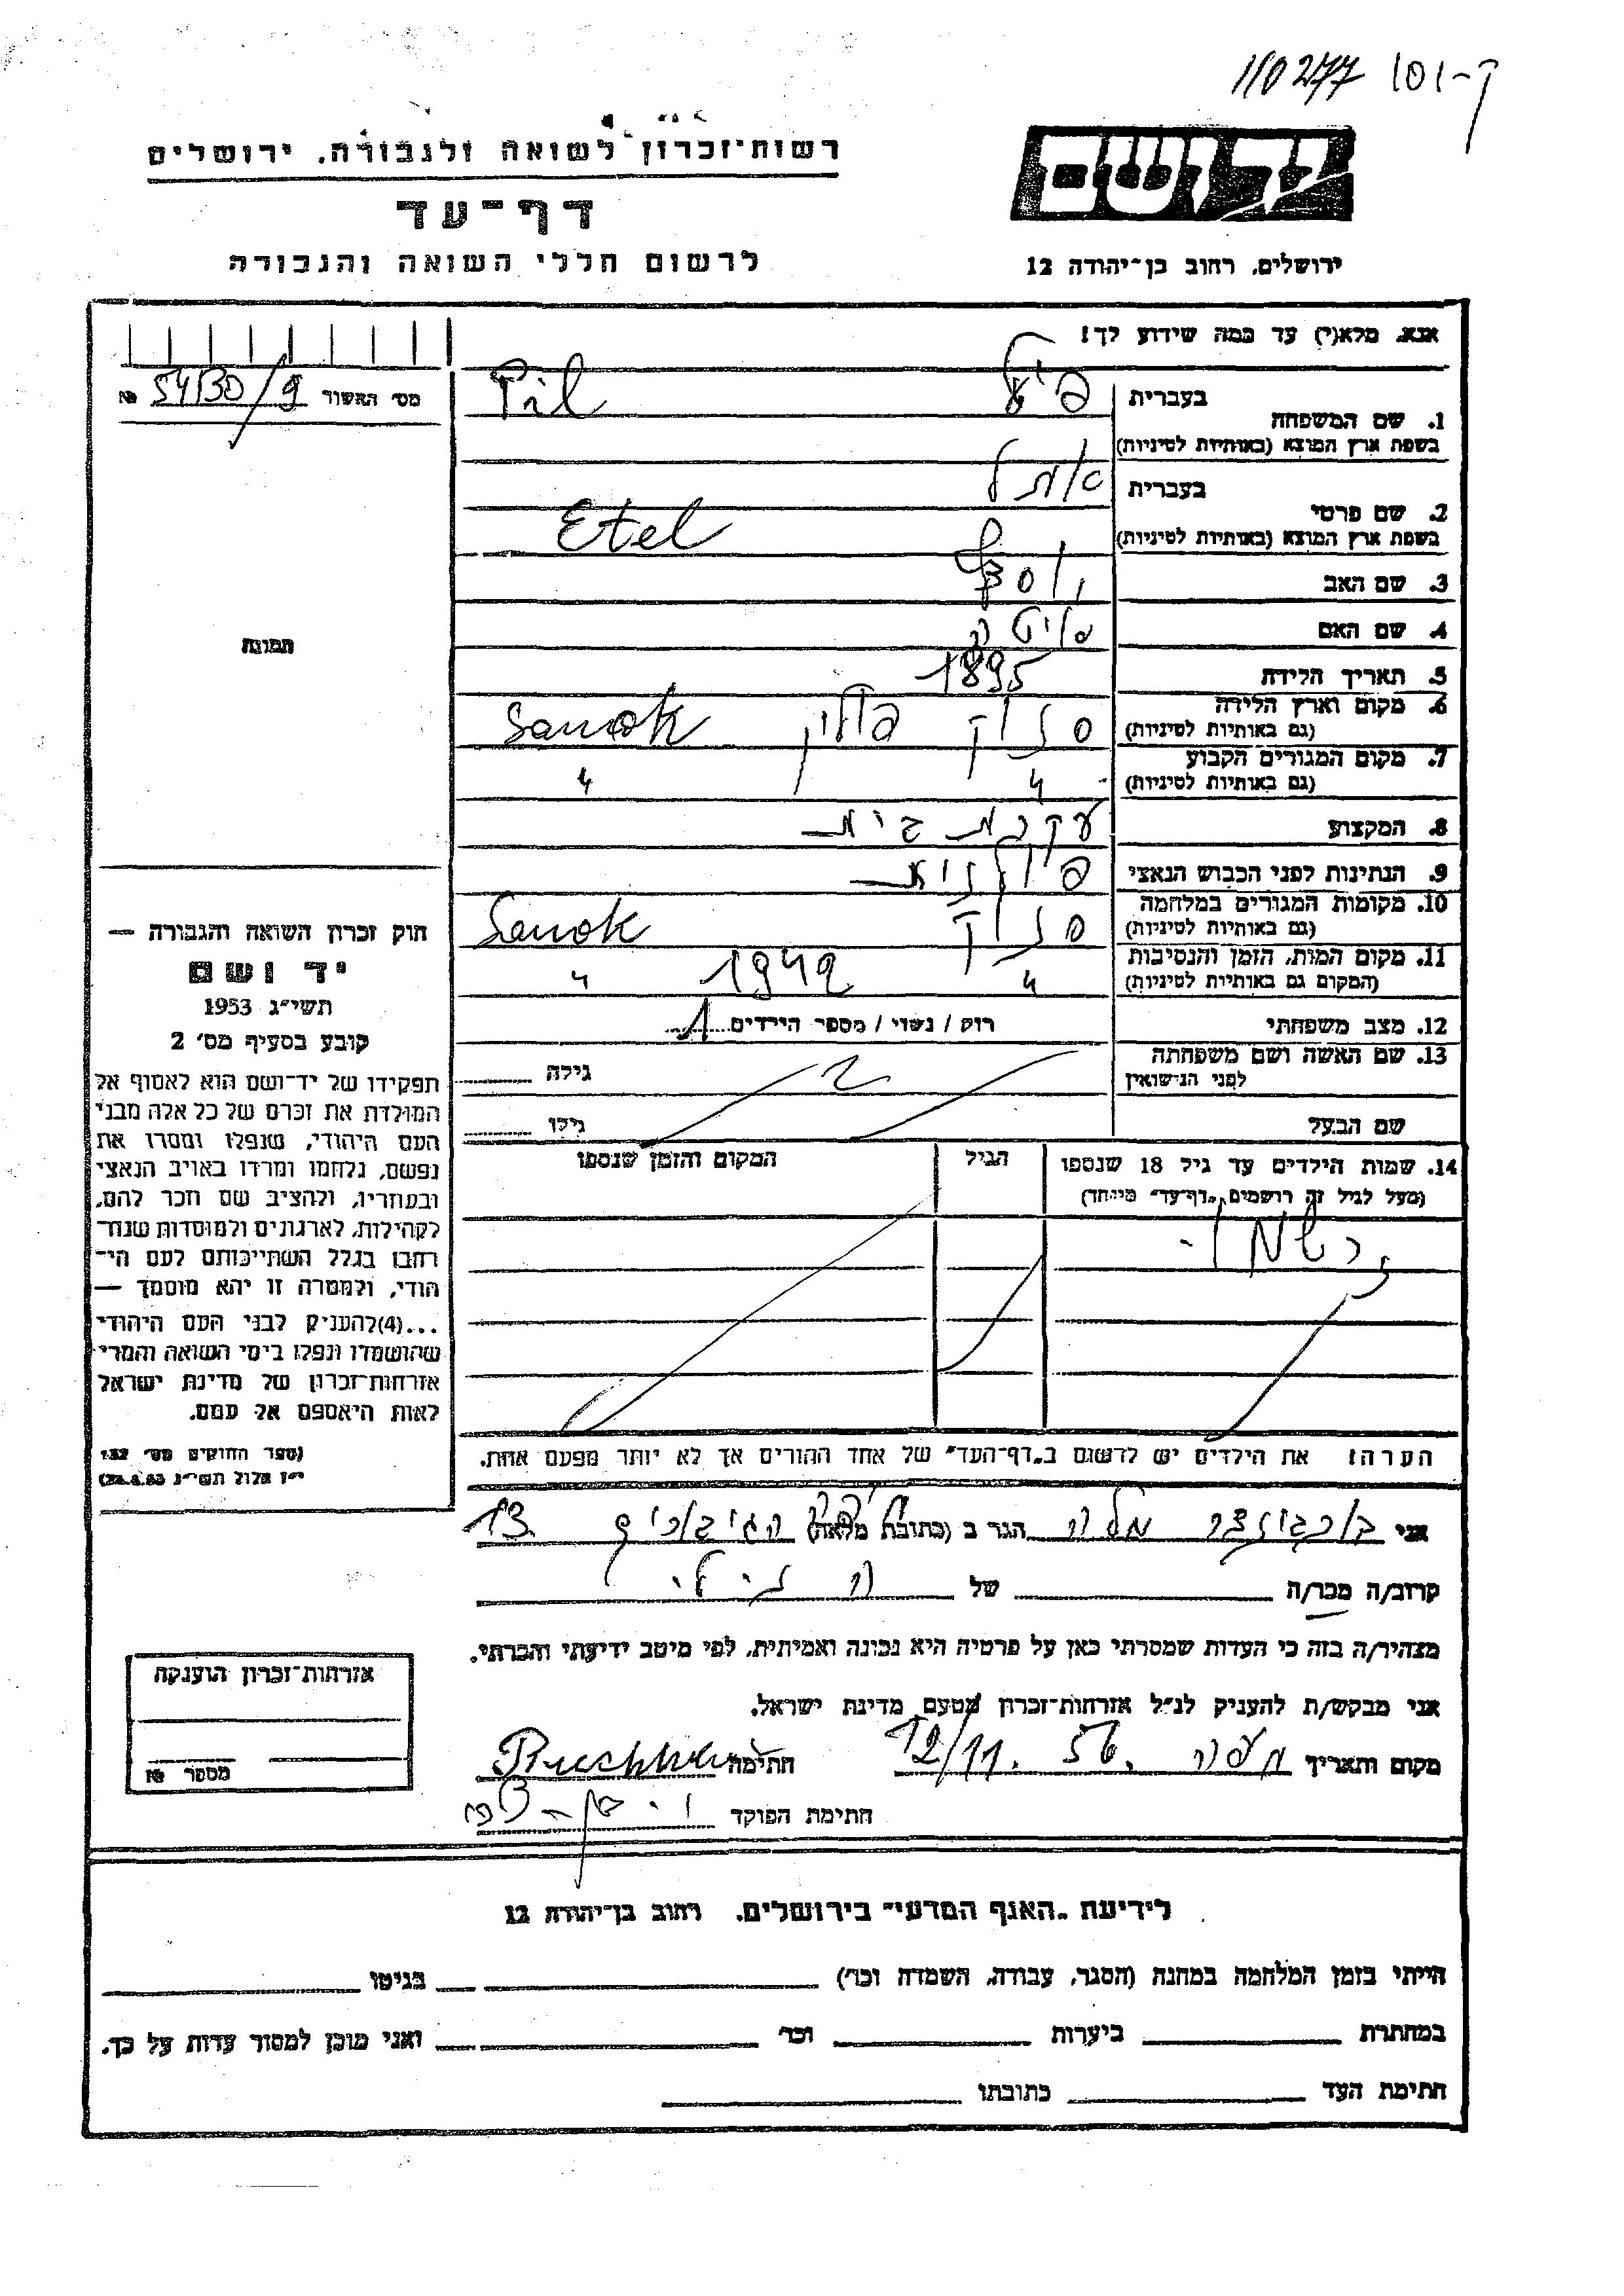 ק-101 110277
יד ושם
רשות־זכרון לשואה ולגבורה, ירושלים
דף־עד
לרשום חללי השואה והגבורה
ירושלים, רחוב בן־יהודה 12
אנא, מלא(י) עד כמה שידוע לך!
מס׳ האשור 54130/9 №
1. שם המשפחה בעברית פיל
בשפת ארץ המוצא (באותיות לטיניות) Pil
2. שם פרטי בעברית אתל
בשפת ארץ המוצא (באותיות לטיניות) Etel
3. שם האב
4. שם האם
5. תאריך הלידה 1895
6. מקום וארץ הלידה (גם באותיות לטיניות) סנוק פולין Sanok
7. מקום המגורים הקבוע (גם באותיות לטיניות) " "
8. המקצוע עקרת בית
9. הנתינות לפני הכבוש הנאצי פולנית
10. מקומות המגורים במלחמה (גם באותיות לטיניות) סנוק Sanok
11. מקום המות, הזמן והנסיבות (המקום גם באותיות לטיניות) " 1942 "
12. מצב משפחתי רווק / נשוי / מספר הילדים 1
13. שם האשה ושם משפחתה לפני הנישואין גילה
שם הבעל גילו
14. שמות הילדים עד גיל 18 שנספו הגיל המקום והזמן שנספו
(מעל לגיל זה רושמים „דף־עד״ מיוחד)
הערה: את הילדים יש לרשום ב„דף־העד״ של אחד ההורים אך לא יותר מפעם אחת.
תמונה
חוק זכרון השואה והגבורה —
יד ושם
תשי״ג 1953
קובע בסעיף מס׳ 2
תפקידו של יד־ושם הוא לאסוף אל
המולדת את זכרם של כל אלה מבני
העם היהודי, שנפלו ומסרו את
נפשם, נלחמו ומרדו באויב הנאצי
ובעוזריו, ולהציב שם וזכר להם,
לקהילות, לארגונים ולמוסדות שנח־
רבו בגלל השתייכותם לעם הי־
הודי, ולמטרה זו יהא מוסמך —
...(4) להעניק לבני העם היהודי
שהושמדו ונפלו בימי השואה והמרי
אזרחות־זכרון של מדינת ישראל
לאות היאספם אל עמם.
(ספר החוקים מס׳ 132
י״ז אלול תשי״ג 28.8.53)
אני הגר ב (כתובת מלאה) 13
קרוב/ה מכר/ה של
מצהיר/ה בזה כי העדות שמסרתי כאן על פרטיה היא נכונה ואמיתית, לפי מיטב ידיעתי והכרתי.
אני מבקש/ת להעניק לנ״ל אזרחות־זכרון מטעם מדינת ישראל.
מקום ותאריך חיפה 12/11. 56. חתימה
חתימת הפוקד
אזרחות־זכרון הוענקה
מספר №
לידיעת „האגף המדעי״ בירושלים, רחוב בן־יהודה 12
הייתי בזמן המלחמה במחנה (הסגר, עבודה, השמדה וכו׳) בגיטו
במחתרת ביערות וכו׳ ואני מוכן למסור עדות על כך.
חתימת העד כתובתו